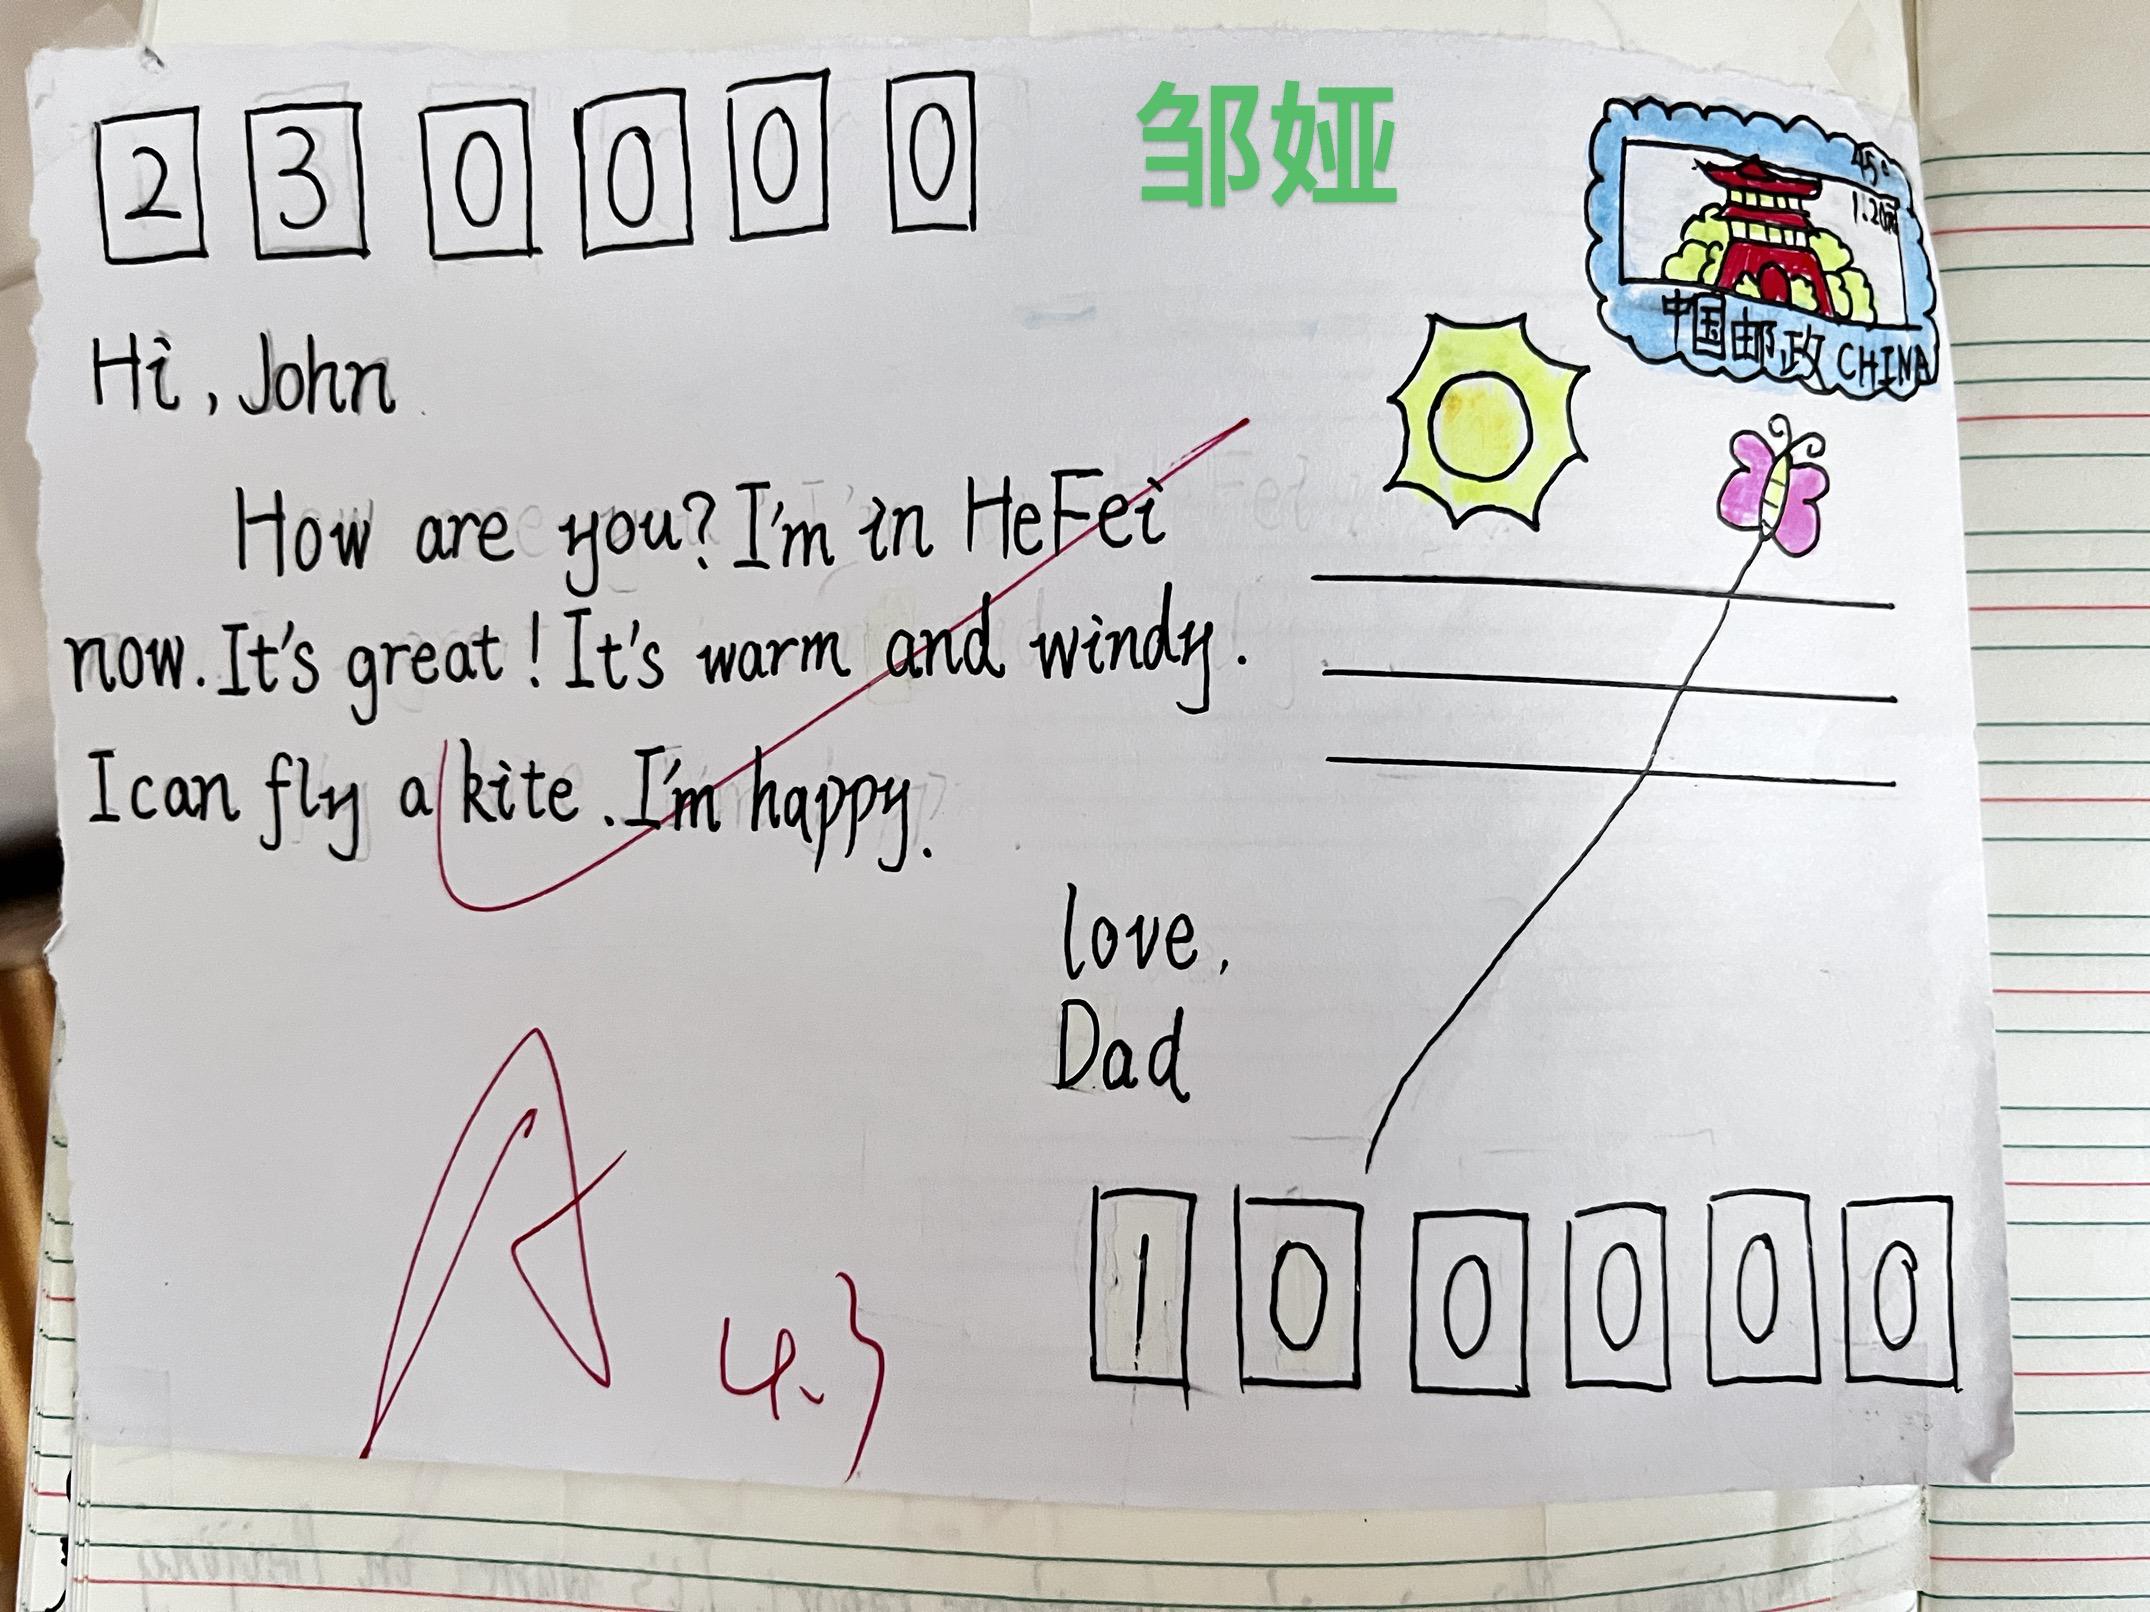 2 3 0 0 0 0
邹娅
1.20元
中国邮政 CHINA
Hi, John
How are you? I'm in HeFei
now. It's great! It's warm and windy.
I can fly a kite. I'm happy.
love,
Dad
A
4.3
1 0 0 0 0 0